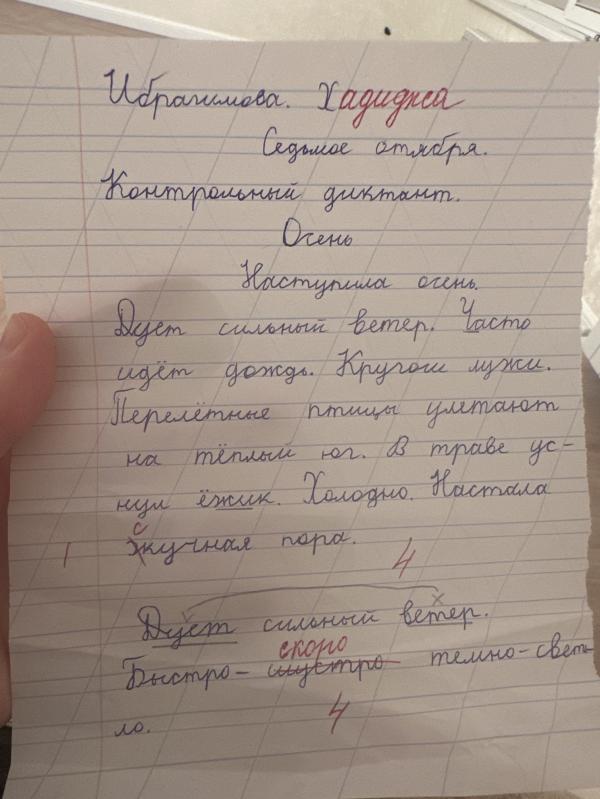 Ибрагимова. Хадиджа
Седьмое октября.
Контрольный диктант.
Осень
Наступила осень.
Дует сильный ветер. Часто
идёт дождь. Кругом лужи.
Перелётные птицы улетают
на тёплый юг. В траве ус-
нул ёжик. Холодно. Настала
с
1 жкучная пора.
4
Дует сильный ветер.
скоро
Быстро- шустро темно-свет-
ло.
4